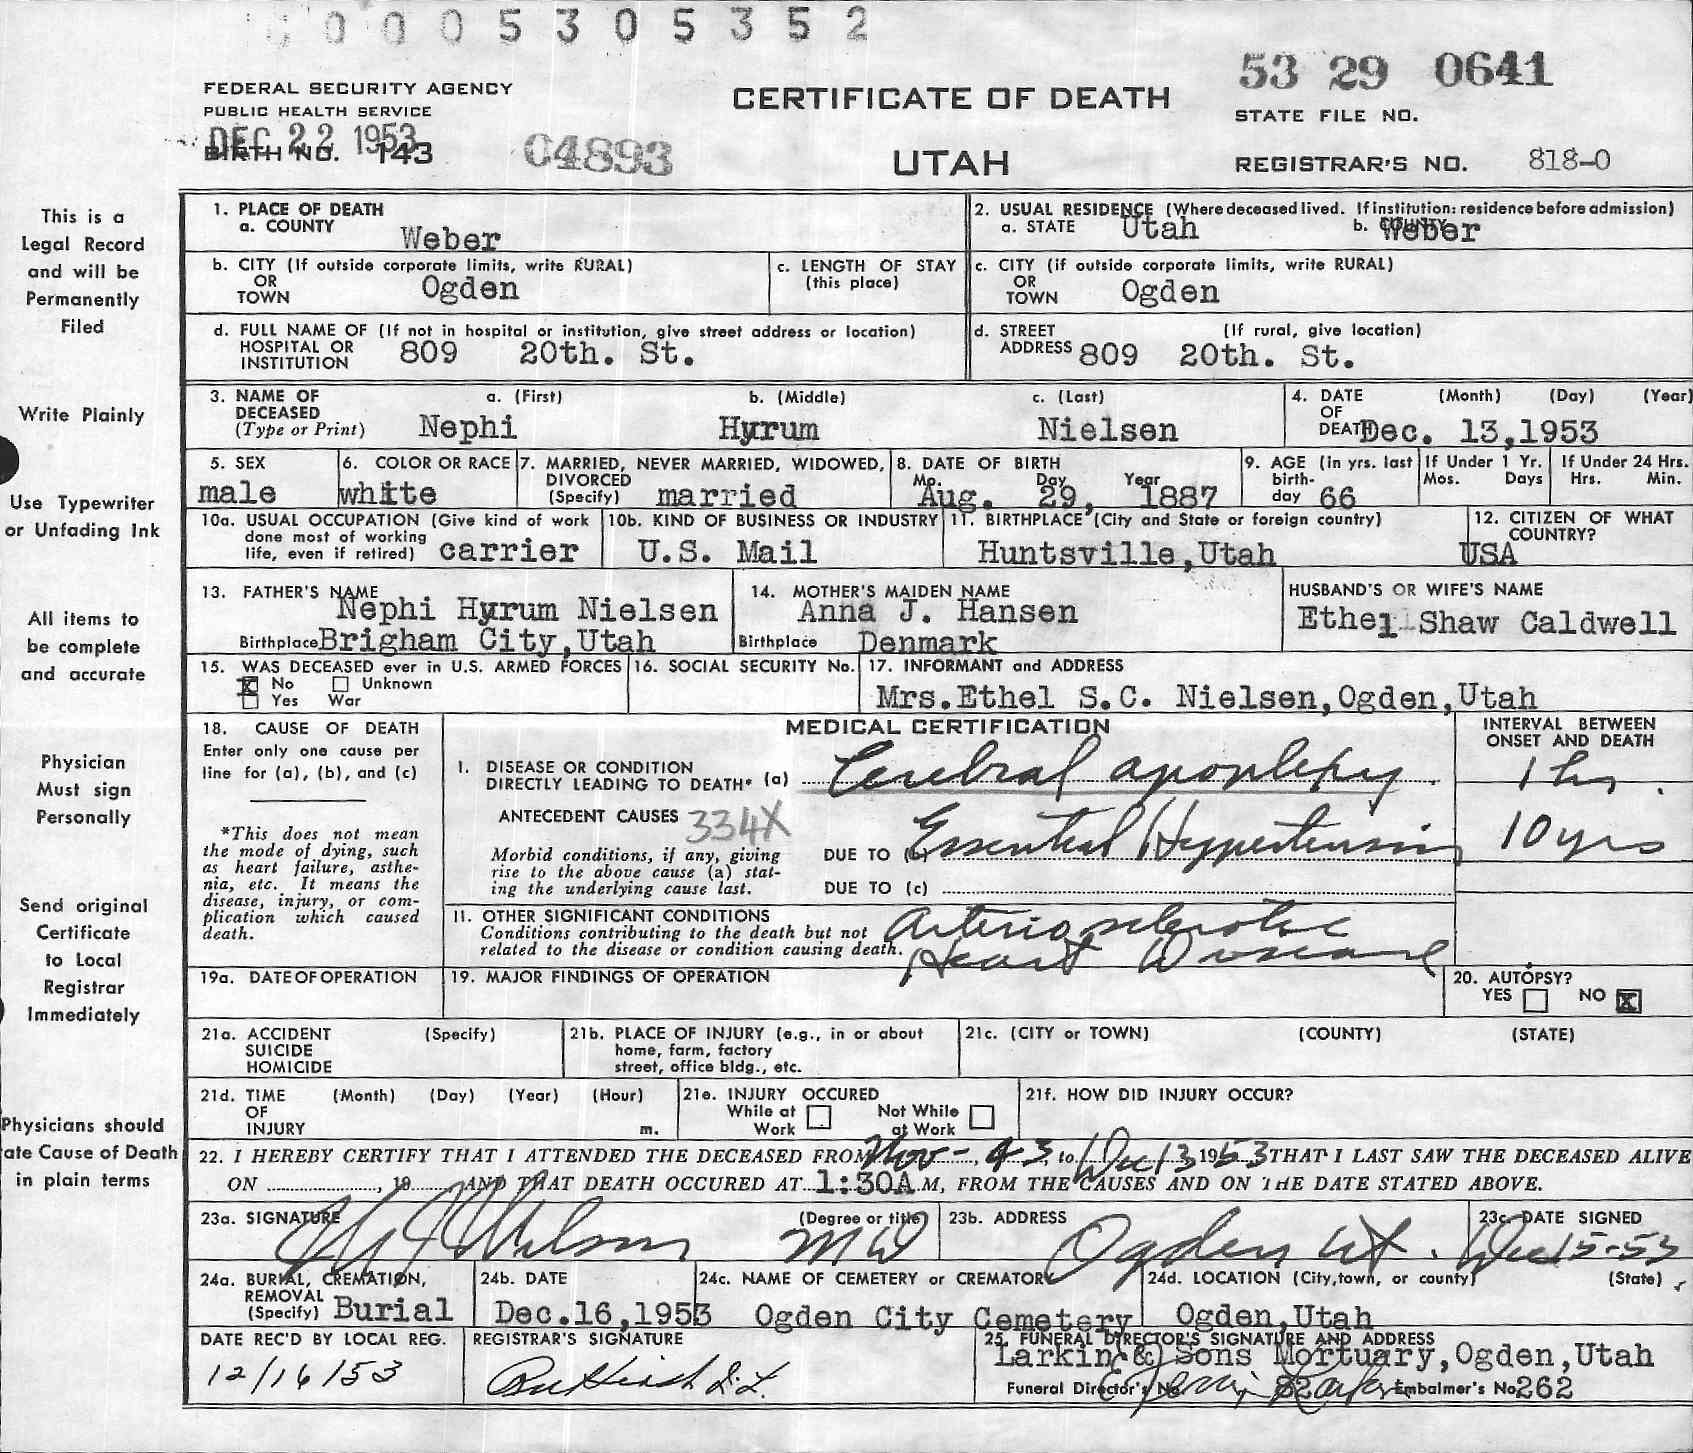 0 0 0 5 3 0 5 3 5 2
53 29 0641
FEDERAL SECURITY AGENCY
PUBLIC HEALTH SERVICE
CERTIFICATE OF DEATH
STATE FILE NO.
DEC 22 1953
BIRTH NO. 143
C4893
UTAH
REGISTRAR'S NO. 818-0
This is a
Legal Record
and will be
Permanently
Filed
Write Plainly
Use Typewriter
or Unfading Ink
All items to
be complete
and accurate
Physician
Must sign
Personally
Send original
Certificate
to Local
Registrar
Immediately
Physicians should
ate Cause of Death
in plain terms
1. PLACE OF DEATH
a. COUNTY Weber
2. USUAL RESIDENCE (Where deceased lived. If institution: residence before admission)
a. STATE Utah b. COUNTY Weber
b. CITY (If outside corporate limits, write RURAL)
OR
TOWN Ogden
c. LENGTH OF STAY
(this place)
c. CITY (if outside corporate limits, write RURAL)
OR
TOWN Ogden
d. FULL NAME OF (If not in hospital or institution, give street address or location)
HOSPITAL OR
INSTITUTION 809 20th. St.
d. STREET (If rural, give location)
ADDRESS 809 20th. St.
3. NAME OF a. (First) b. (Middle) c. (Last)
DECEASED
(Type or Print) Nephi Hyrum Nielsen
4. DATE (Month) (Day) (Year)
OF
DEATH Dec. 13,1953
5. SEX
male
6. COLOR OR RACE
white
7. MARRIED, NEVER MARRIED, WIDOWED,
DIVORCED
(Specify) married
8. DATE OF BIRTH
Mo. Day Year
Aug. 29, 1887
9. AGE (in yrs. last
birth-
day 66
If Under 1 Yr.
Mos. Days
If Under 24 Hrs.
Hrs. Min.
10a. USUAL OCCUPATION (Give kind of work
done most of working
life, even if retired) carrier
10b. KIND OF BUSINESS OR INDUSTRY
U.S. Mail
11. BIRTHPLACE (City and State or foreign country)
Huntsville,Utah
12. CITIZEN OF WHAT
COUNTRY?
USA
13. FATHER'S NAME
Nephi Hyrum Nielsen
Birthplace Brigham City,Utah
14. MOTHER'S MAIDEN NAME
Anna J. Hansen
Birthplace Denmark
HUSBAND'S OR WIFE'S NAME
Ethel Shaw Caldwell
15. WAS DECEASED ever in U.S. ARMED FORCES
X No Unknown
Yes War
16. SOCIAL SECURITY No.
17. INFORMANT and ADDRESS
Mrs.Ethel S.C. Nielsen,Ogden,Utah
18. CAUSE OF DEATH
Enter only one cause per
line for (a), (b), and (c)
*This does not mean
the mode of dying, such
as heart failure, asthe-
nia, etc. It means the
disease, injury, or com-
plication which caused
death.
MEDICAL CERTIFICATION
INTERVAL BETWEEN
ONSET AND DEATH
1. DISEASE OR CONDITION
DIRECTLY LEADING TO DEATH* (a) Cerebral apoplexy 1 hr.
ANTECEDENT CAUSES 334X
Morbid conditions, if any, giving
rise to the above cause (a) stat-
ing the underlying cause last.
DUE TO (b) Essential Hypertension 10 yrs
DUE TO (c)
11. OTHER SIGNIFICANT CONDITIONS
Conditions contributing to the death but not
related to the disease or condition causing death.
Arteriosclerotic
Heart Disease
19a. DATE OF OPERATION
19. MAJOR FINDINGS OF OPERATION
20. AUTOPSY?
YES NO X
21a. ACCIDENT (Specify)
SUICIDE
HOMICIDE
21b. PLACE OF INJURY (e.g., in or about
home, farm, factory
street, office bldg., etc.
21c. (CITY or TOWN) (COUNTY) (STATE)
21d. TIME (Month) (Day) (Year) (Hour)
OF
INJURY m.
21e. INJURY OCCURED
While at Not While
Work at Work
21f. HOW DID INJURY OCCUR?
22. I HEREBY CERTIFY THAT I ATTENDED THE DECEASED FROM Nov-, 43, to Dec 13 1953 THAT I LAST SAW THE DECEASED ALIVE
ON , 19 AND THAT DEATH OCCURED AT 1:30A.M, FROM THE CAUSES AND ON THE DATE STATED ABOVE.
23a. SIGNATURE (Degree or title)
MD
23b. ADDRESS
Ogden Ut.
23c. DATE SIGNED
Dec 15-53
24a. BURIAL, CREMATION,
REMOVAL
(Specify) Burial
24b. DATE
Dec.16,1953
24c. NAME OF CEMETERY or CREMATORY
Ogden City Cemetery
24d. LOCATION (City,town, or county) (State)
Ogden,Utah
DATE REC'D BY LOCAL REG.
12/16/53
REGISTRAR'S SIGNATURE
25. FUNERAL DIRECTOR'S SIGNATURE AND ADDRESS
Larkin & Sons Mortuary,Ogden,Utah
Funeral Director's No. 82 Embalmer's No 262